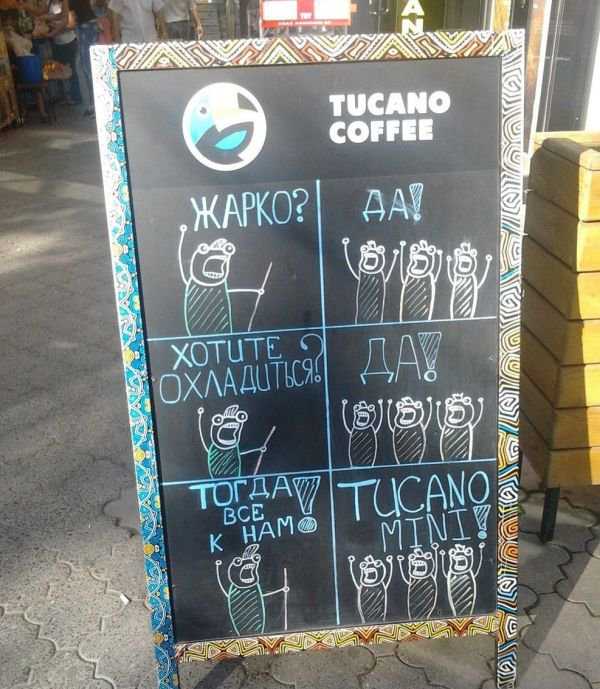 TUCANO
COFFEE
ЖАРКО?
ДА!
ХОТИТЕ
ОХЛАДИТЬСЯ?
ДА!
ТОГДА
ВСЕ
К НАМ!
TUCANO
MINI!